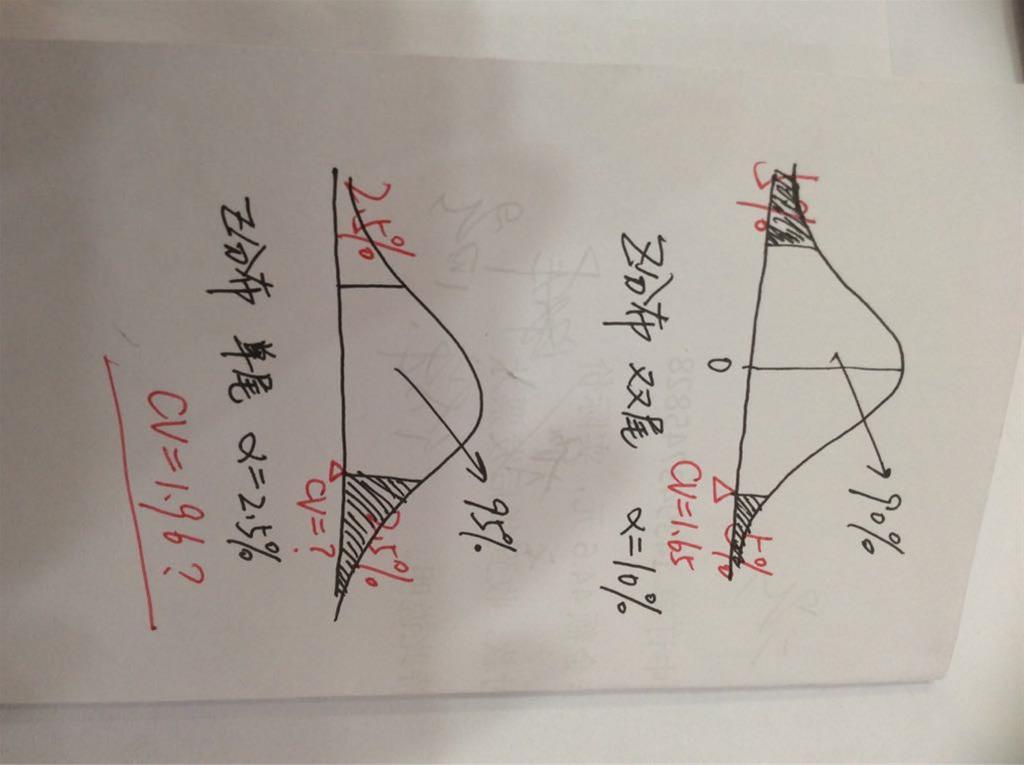 90%
5%
5%
0
CV=1.65
Z分布 双尾 α=10%
95%
2.5%
2.5%
CV=?
Z分布 单尾 α=2.5%
CV=1.96?